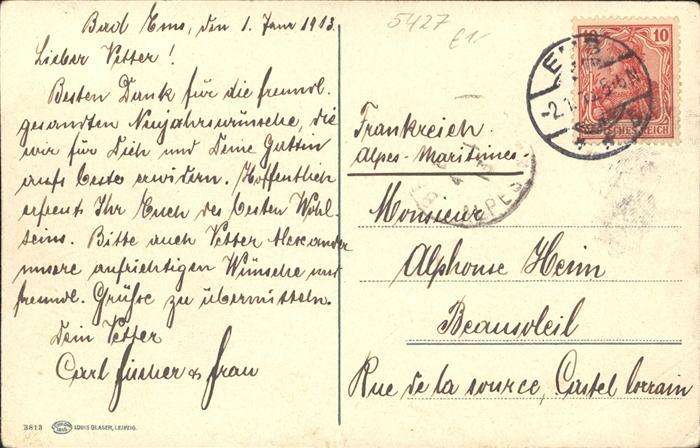 Bad Ems, den 1. Janr 1913.
Lieber Vetter!
Besten Dank für die freundl.
gesandten Neujahrswünsche, die
wir für Dich und Deine Gattin
aufs beste erwidern. Hoffentlich
erfreut Ihr Euch des besten Wohl-
seins. Bitte auch Vetter Alexander
unsere aufrichtigen Wünsche und
freundl. Grüße zu übermitteln.
Dein Vetter
Carl Fischer & Frau
3813 LOUIS GLASER, LEIPZIG.
5427
£1-
10
EMS
-2.1.13. 5-6N
DEUTSCHES REICH
Frankreich.
Alpes-Maritimes-
ALPES
Monsieur
Alphonse Heim
Beausoleil
Rue de la source, Castel lorrain